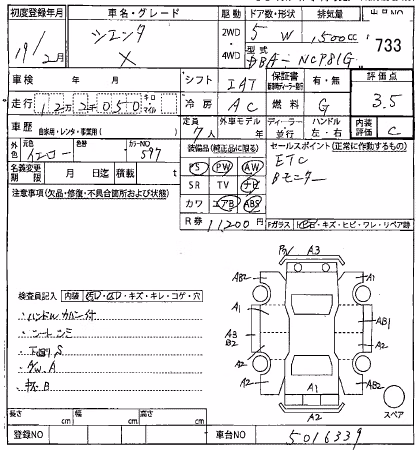 初度登録年月 車名・グレード 駆動 ドア数・形状 排気量
19/2月 シエンタ X 2WD 4WD 5 W 1,500cc 733
型式 DBA-NCP81G
車検 年 月 シフト IAT 保証書 有・無 評価点
走行 12万2千050 キロ マイル 冷房 AC 燃料 G 3.5
車歴 自家用・レンタ・事業用( ) 定員 7人 外車モデル 年 ディーラー・並行 ハンドル 左・右 内装評価 C
外色 元色 イエロー 色替 カラーNO 597 装備品(純正品に限る) セールスポイント(正常に作動するもの)
PS PW AW ETC
名義変更期限 月 日迄 積載 t SR TV ナビ Bモニター
注意事項(欠品・修復・不具合箇所および状態) カワ エアB ABS
R券 11,200円 Fガラス キズ・ヒビ・ワレ・リペア跡
A3
AB2 A1
A1 AB1
A3 B2 A2
A2 A1 AB2
A2 スペア
検査員記入 内装 キズ・キレ・コゲ・穴
・ハンドルカバー付
・シートシミ
・下廻りS
長さ cm 幅 cm 高さ cm
登録NO 車台NO 5016339